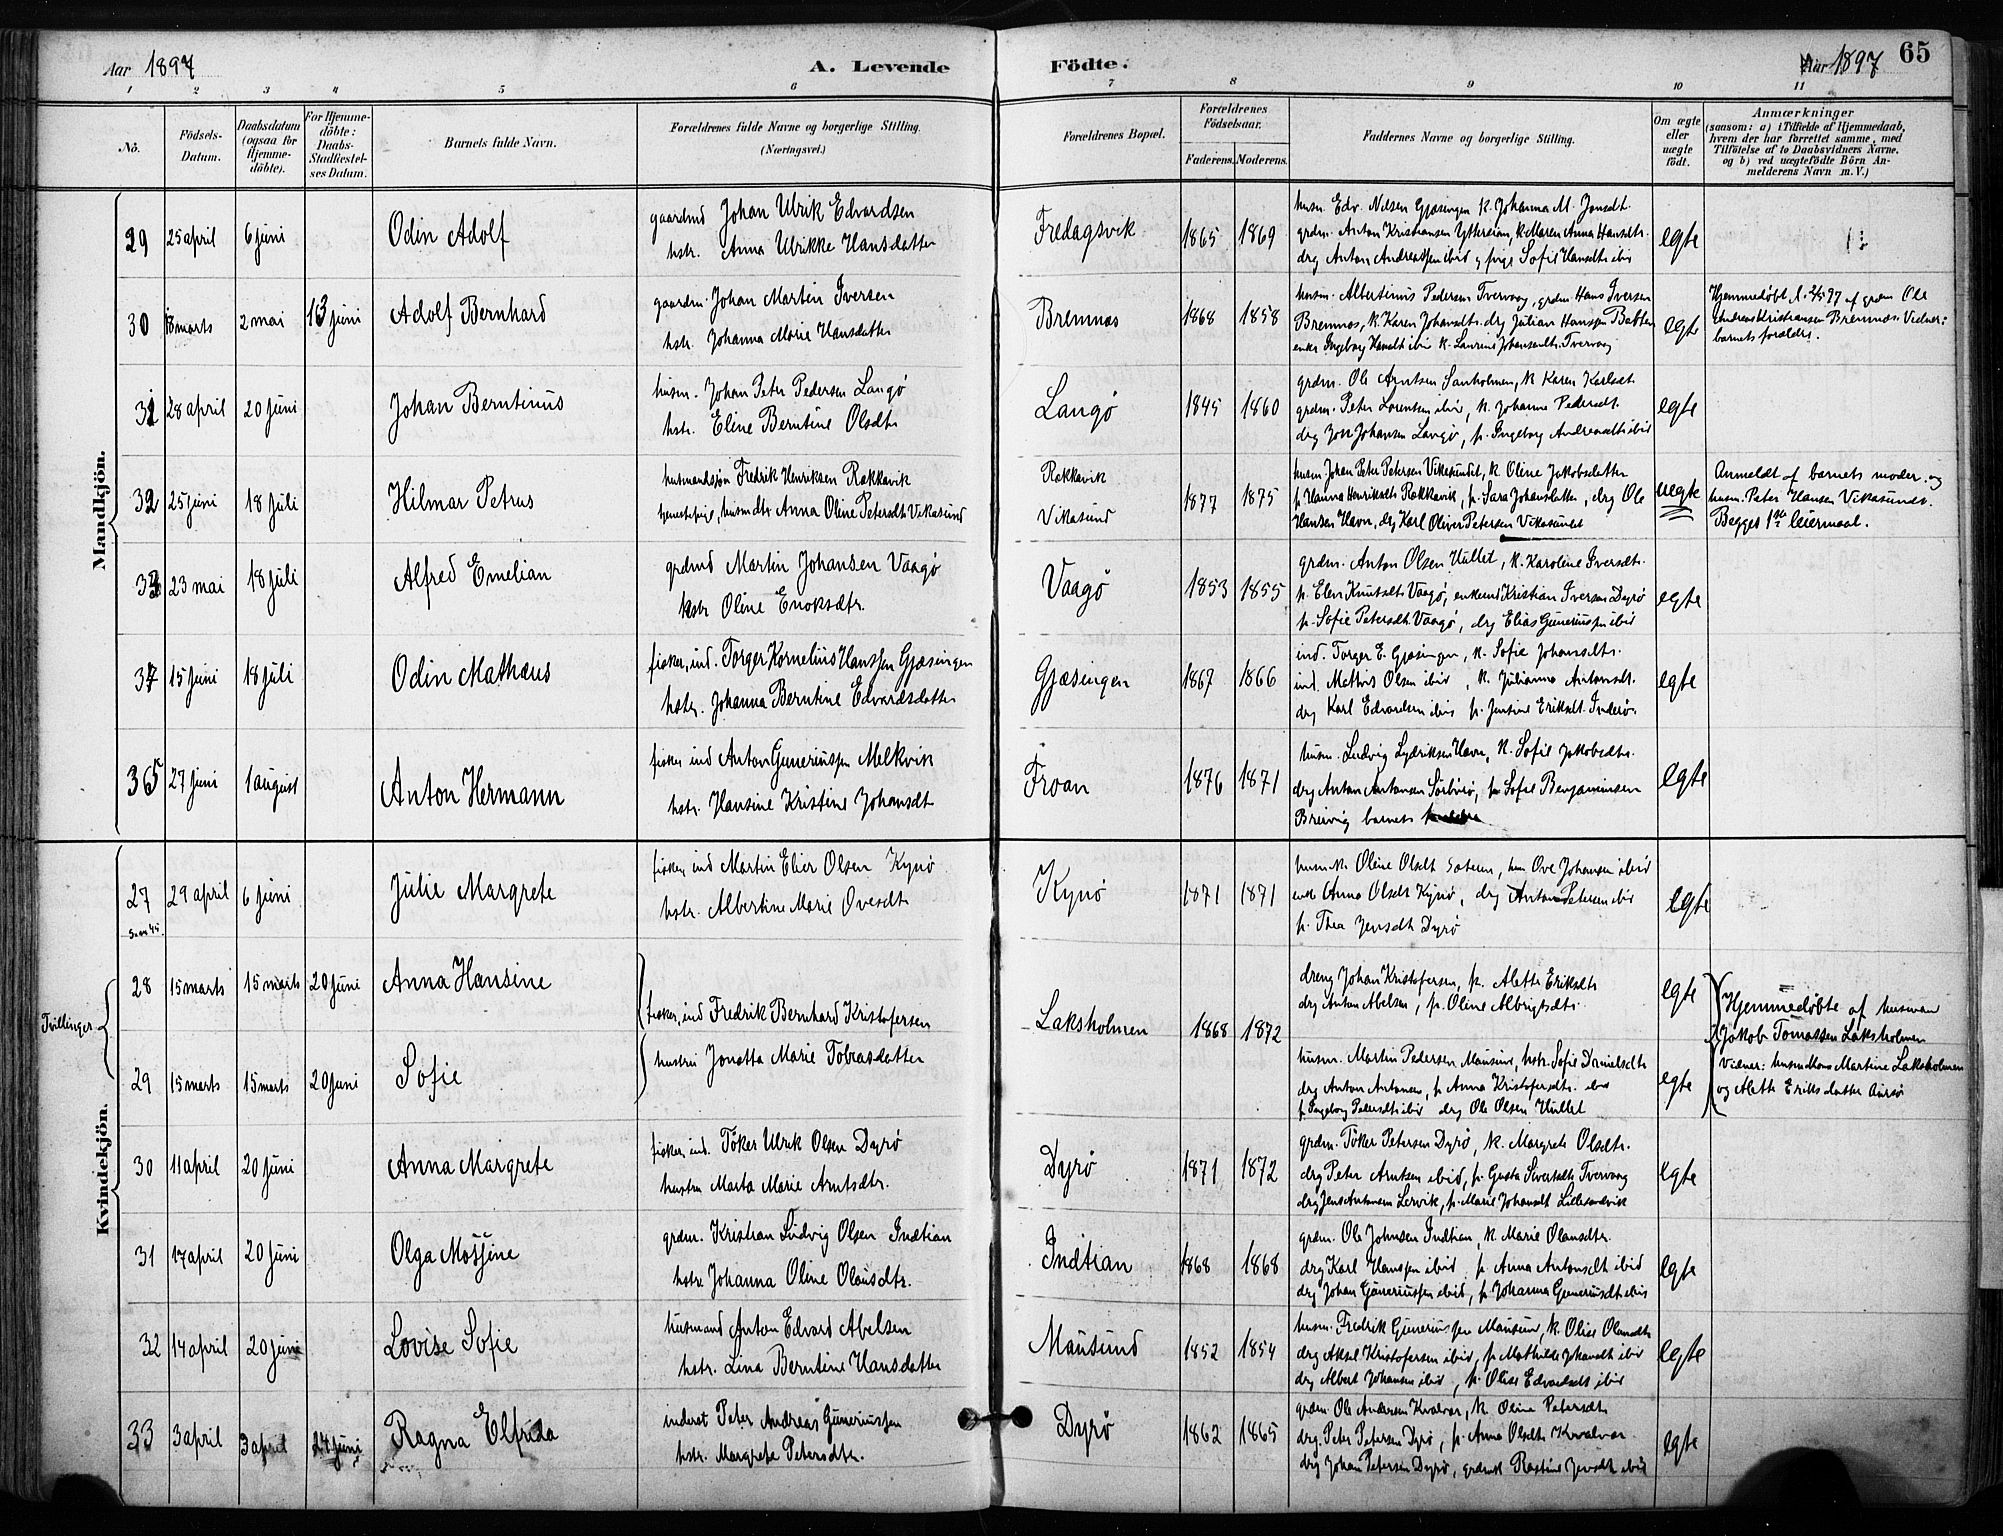 Aar 1897
A. Levende Födte.
Aar 1897
65
1 2 3 4 5 6 7 8 9 10 11
No.
Födsels-Datum.
Daabsdatum (ogsaa for Hjemmedöbte).
For Hjemmedöbte: Daabs-Stadfæstelses Datum.
Barnets fulde Navn.
Forældrenes fulde Navne og borgerlige Stilling.
(Næringsvei.)
Forældrenes Bopæl.
Forældrenes Födselsaar.
Faderens. Moderens.
Faddernes Navne og borgerlige Stilling.
Om ægte eller uægte födt.
Anmærkninger
(saasom: a) i Tilfælde af Hjemmedaab,
hvem der har forrettet samme, med
Tilföielse af to Daabsvidners Navne,
og b) ved uægtefödte Börn An-
melderens Navn m. V.)
Mandkjön.
29 25 april 6 juni Odin Adolf
gaardmd Johan Ulrik Edvardsen
hstr. Anna Ulrikke Hansdatter
Fredagsvik 1865 1869
husm. Edv. Nilsen Gjæsingen k. Johanna M. Jonsdt.
grdm. Anton Kristiansen Yttereian, k. Maren Anna Hansdtr.
drg Anton Andreassen ibid og pige Sofie Hansdtr ibid
egte
30 18 marts 2 mai 13 juni Adolf Bernhard
gaardm. Johan Martin Iversen
hstr. Johanna Marie Hansdatter
Bremnæs 1868 1858
husm. Albertinus Pedersen Tvervaag, grdm Hans Iversen
Bremnæs, k. Karen Johansdtr. drg Julian Hanssen Batten
enke Ingeborg Hansdt ibid k. Laurense Johansdtr. Tvervaag
egte
Hjemmedøbt d. 2/5 97 af grdm Ole
Andreas Kristiansen Bremnæs. Vidner:
barnets forældre.
31 28 april 20 juni Johan Berntinus
husm. Johan Peter Pedersen Langø
hstr. Eline Berntine Olsdtr
Langø 1845 1860
grdm. Ole Arntsen Sanholmen, k Karen Karlsdt.
grdm. Peter Lorentsen ibid, k. Johanne Pedersdt.
drg Jon Johansen Langø, p. Ingeborg Andreasdtr ibid
egte
32 25 juni 18 juli Hilmar Petrus
husmandssøn Fredrik Henriksen Rakkavik
tjenestepig, husmdtr Anna Oline Petersdtr Vikasund
Rakkavik
Vikasund
1877 1875
husm. Johan Peter Petersen Vikasundet, k. Oline Jakobsdatter
p. Hanna Henriksdt Rakkavik, p. Sara Johansdatter, drg Ole
Hansen Havn, drg Karl Oliver Petersen Vikasundet
uegte
Anmeldt af barnets moder og
husm. Peter Hansen Vikasundt.
Begges 1ste leiermaal.
33 23 mai 18 juli Alfred Emelian
grdmd Martin Johansen Vaagø
hstr Oline Enoksdtr.
Vaagø 1853 1855
grdm. Anton Olsen Hullet, k. Karoline Iversdtr.
p. Elen Knutsdt Vaagø, enkemd Kristian Iversen Dyrø
p. Sofie Petersdtr Vaagø, drg Elias Guneriussen ibid
egte
34 15 juni 18 juli Odin Mathæus
fisker, ind. Torger Kornelius Hanssen Gjæsingen
hstr. Johanna Berntine Edvardsdatter
Gjæsingen 1867 1866
ind. Torger E. Gjæsingen, k. Sofie Johansdtr.
ind. Mathis Olsen ibid, k. Julianna Antonsdt.
drg Karl Edvardsen ibid p. Jensine Eriksdt. Inderø.
egte
35 27 juni 1 august Anton Hermann
fisker ind Anton Guneriussen Melkvik
hstr. Hansine Kristine Johansdt
Froan 1876 1871
husm. Ludvig Lydriksen Havn, k. Sofie Jakobsdtr.
drg Anton Antonsen Sörburö, p. Sofie Benjaminsen
Breivig barnets
egte
Kvindekjön.
27 29 april 6 juni Julie Margrete
fisker, ind Martin Elier Olsen Kyrø
hstr. Albertine Marie Ovesdt
Kyrø 1871 1871
husm k. Oline Olsdt Sæteren, husm Ove Johansen ibid
enke Anna Olsdt Kyrø, drg Anton Petersen ibid
p. Thea Jensdt Dyrø
egte
Tvillinger
28 15 marts 15 marts 20 juni Anna Hansine
fisker, ind Fredrik Bernhard Kristofersen
hustru Jonetta Marie Tobiasdatter
Laksholmen 1868 1872
dreng Johan Kristofersen, p. Alette Eriksdtr
drg Anton Abelsen, p. Oline Albrigtsdtr.
egte
Hjemmedøbte af husman
Jakob Tomassen Laksholmen
Vidner: husmdkone Martine Laksholmen
og Alette Eriksdatter Aursø
29 15 marts 15 marts 20 juni Sofie
husm. Martin Pedersen Mausund, hstr. Sofie Danielsdtr
drg Anton Antonsen, p Anna Kristofersdtr. ibid
p. Ingeborg Petersdt ibid drg Ole Olsen Hullet
egte
30 11 april 20 juni Anna Margrete
fisker, ind. Töker Ulrik Olsen Dyrø
hustru Marta Marie Arntsdtr.
Dyrø 1871 1872
grdm. Töker Petersen Dyrø, k. Margrete Olsdtr.
drg Peter Arntsen ibid, p. Gusta Sivertsdtr Tvervaag
drg Jens Antonsen Lervik, p. Marie Johansdt Lillesandvik
egte
31 17 april 20 juni Olga Mossine
grdm. Kristian Ludvig Olsen Indtian
hstr. Johanna Oline Olausdtr.
Indtian 1868 1868
grdm. Ole Johnsen Indtian, k. Marie Olausdtr.
drg Karl Hanssen ibid p. Anna Antonsdt ibid
drg Johan Guneriussen ibid, p. Johanna Guneriusdt ibid
egte
32 14 april 20 juni Lovise Sofie
husmand Anton Edvard Abelsen
hstr. Lina Berntine Hansdatter
Mausund 1852 1854
husm. Fredrik Guneriussen Mausund, k. Olise Olausdtr
drg Aksel Kristofersen ibid, p. Mathilde Johansdt ibid
drg Albert Johansen ibid, p. Olise Edvardsdt ibid
egte
33 3 april 3 april 24 juni Ragna Elfrida
inderst Peter Andreas Guneriussen
hstr. Margrete Petersdtr.
Dyrø 1862 1865
grdm. Ole Andersen Kvalvær, k Oline Petersdtr
drg. Peter Petersen Dyrø, p. Anna Olsdtr Kvalvær
drg Johan Petersen Dyrø, grdmk Rastine Jensdt ibid
egte